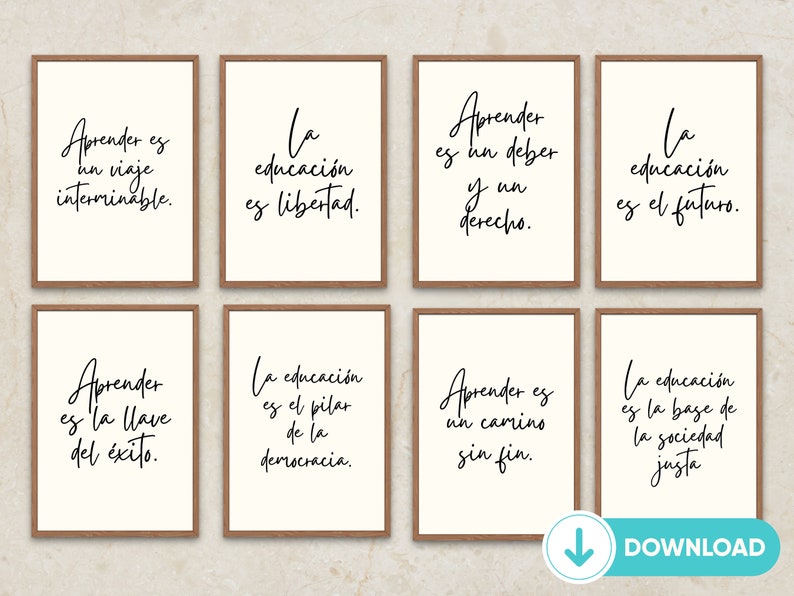 Aprender es
un viaje
interminable.
La
educación
es libertad.
Aprender
es un deber
y un
derecho.
La
educación
es el futuro.
Aprender
es la llave
del éxito.
La educación
es el pilar
de la
democracia.
Aprender es
un camino
sin fin.
La educación
es la base de
la sociedad
justa
DOWNLOAD